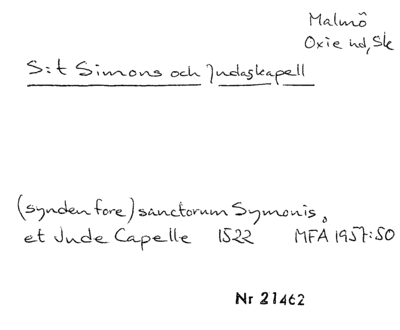 Malmö
Oxie hd, Sk
S:t Simons och Judaskapell
(synden fore) sanctorum Symonis,
et Jude Capelle 1522 MFA 1957:50
Nr 21462